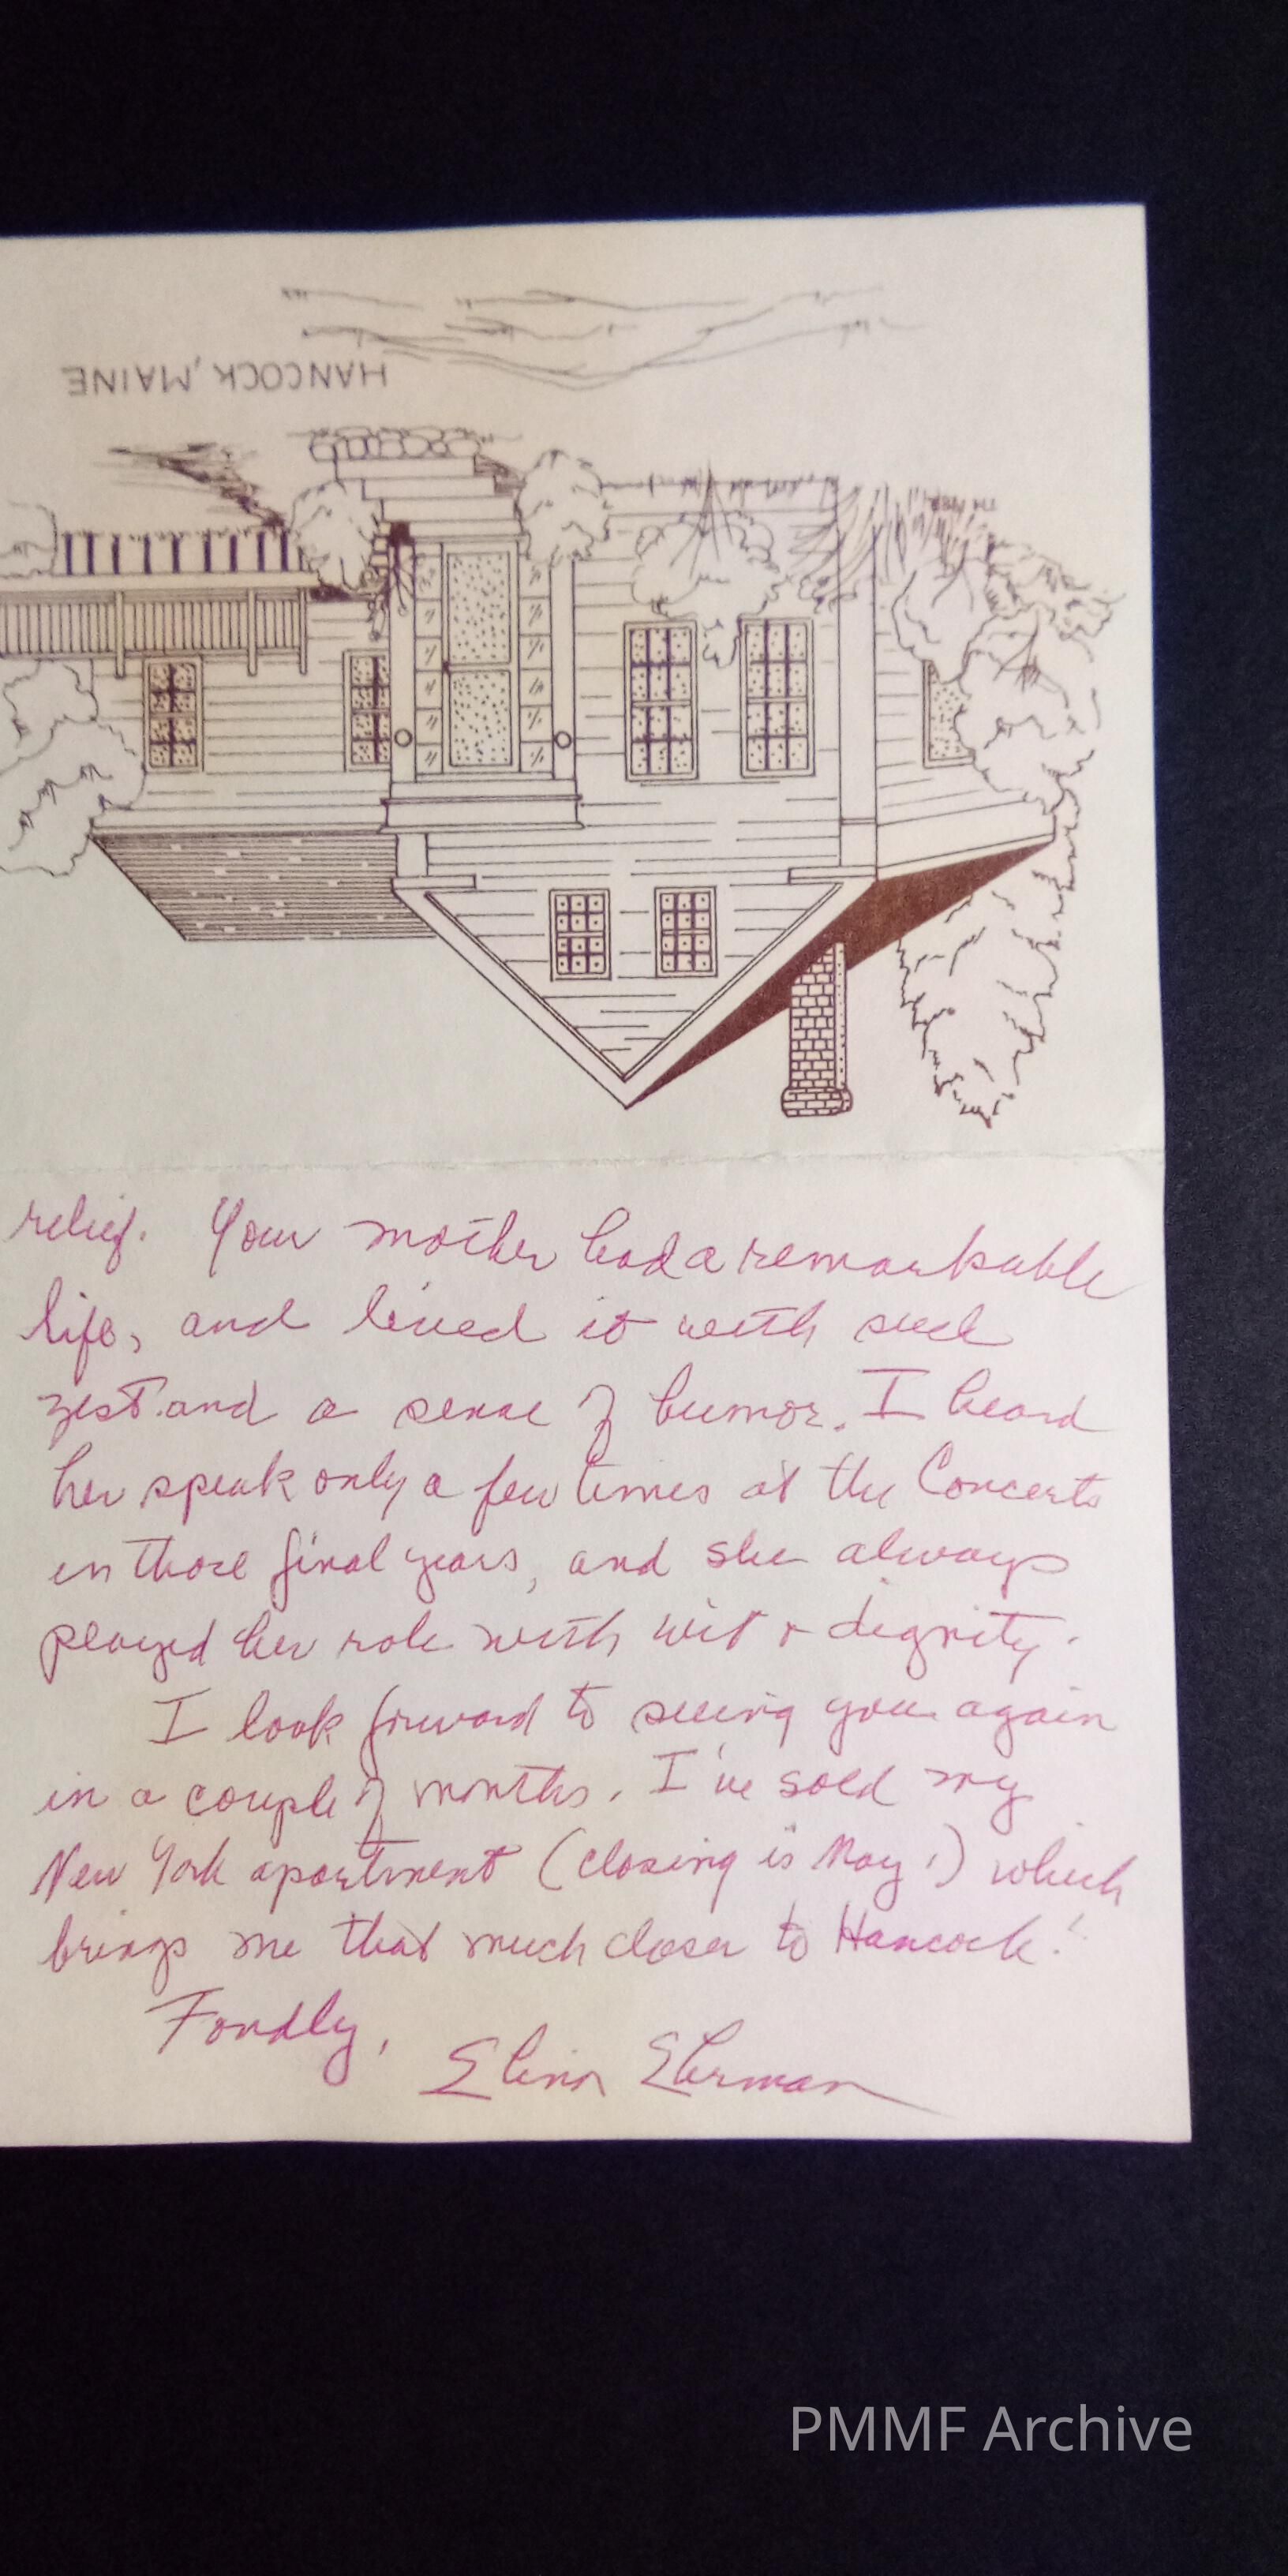 HANCOCK, MAINE
relief. Your mother had a remarkable
life, and lived it with such
zest and a sense of humor. I heard
her speak only a few times at the Concerts
in those final years, and she always
played her role with wit & dignity.
I look forward to seeing you again
in a couple of months. I've sold my
New York apartment (closing is May 1) which
brings me that much closer to Hancock!
Fondly,
Elinor
PMMF Archive